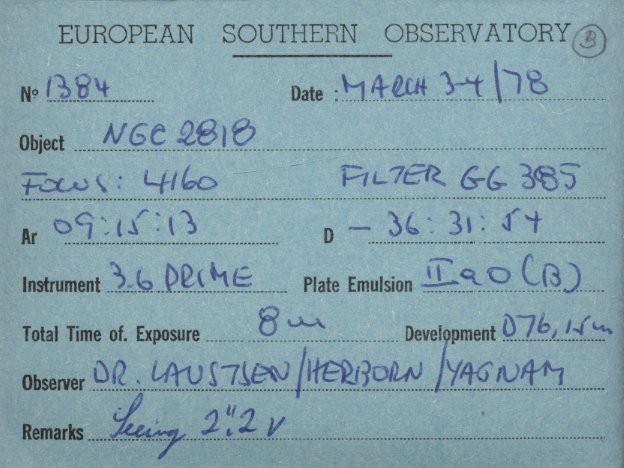 EUROPEAN SOUTHERN OBSERVATORY B
Nº 1384 Date: MARCH 3-4/78
Object NGC 2818
FOCUS: 4160 FILTER GG 385
Ar 09:15:13 D - 36:31:54
Instrument 3.6 PRIME Plate Emulsion IIaO (B)
Total Time of. Exposure 8m Development D76, 15m
Observer DR. LAUSTSEN/HERBORN/YAGNAM
Remarks Seeing 2".2 V